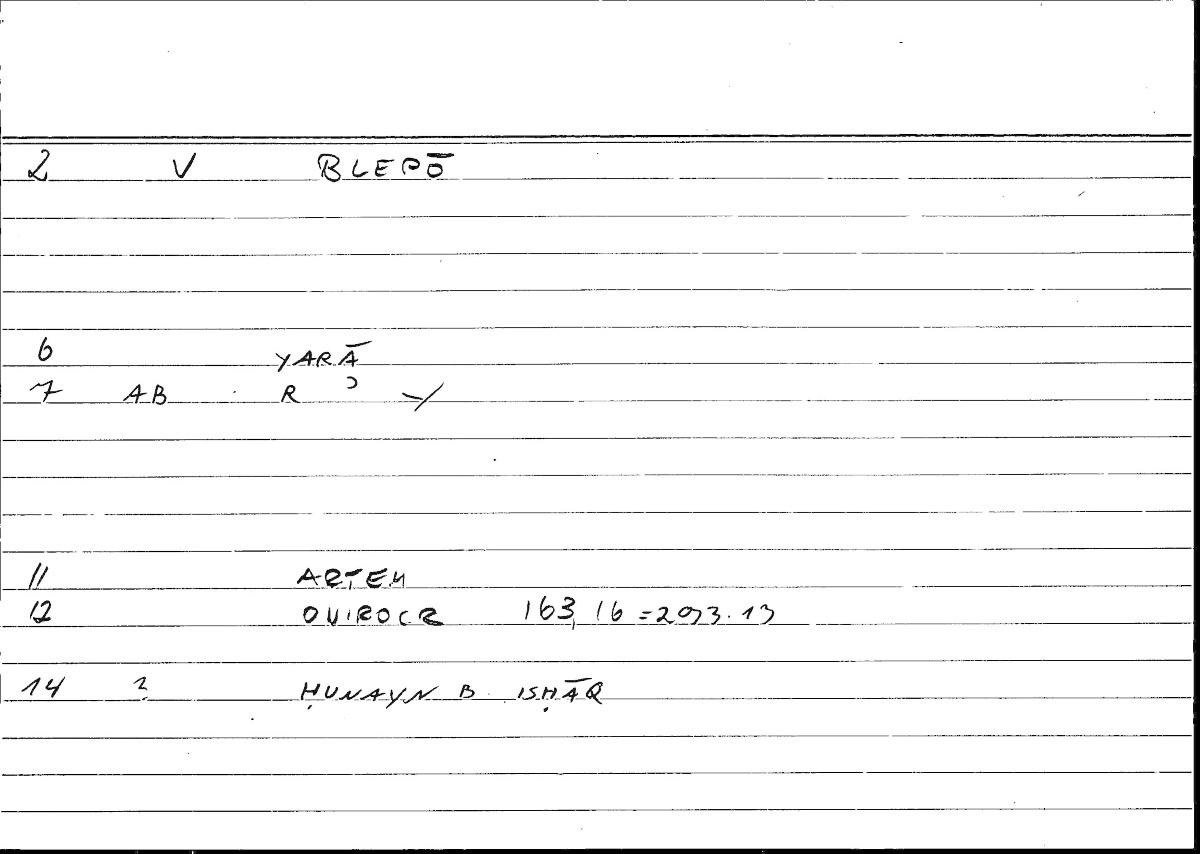 2 V BLEPŌ
6 YARĀ
7 AB R ʾ Y
11 ARTEM
12 ONIROCR 163,16 = 293.13
14 ? ḤUNAYN B ISḤĀQ